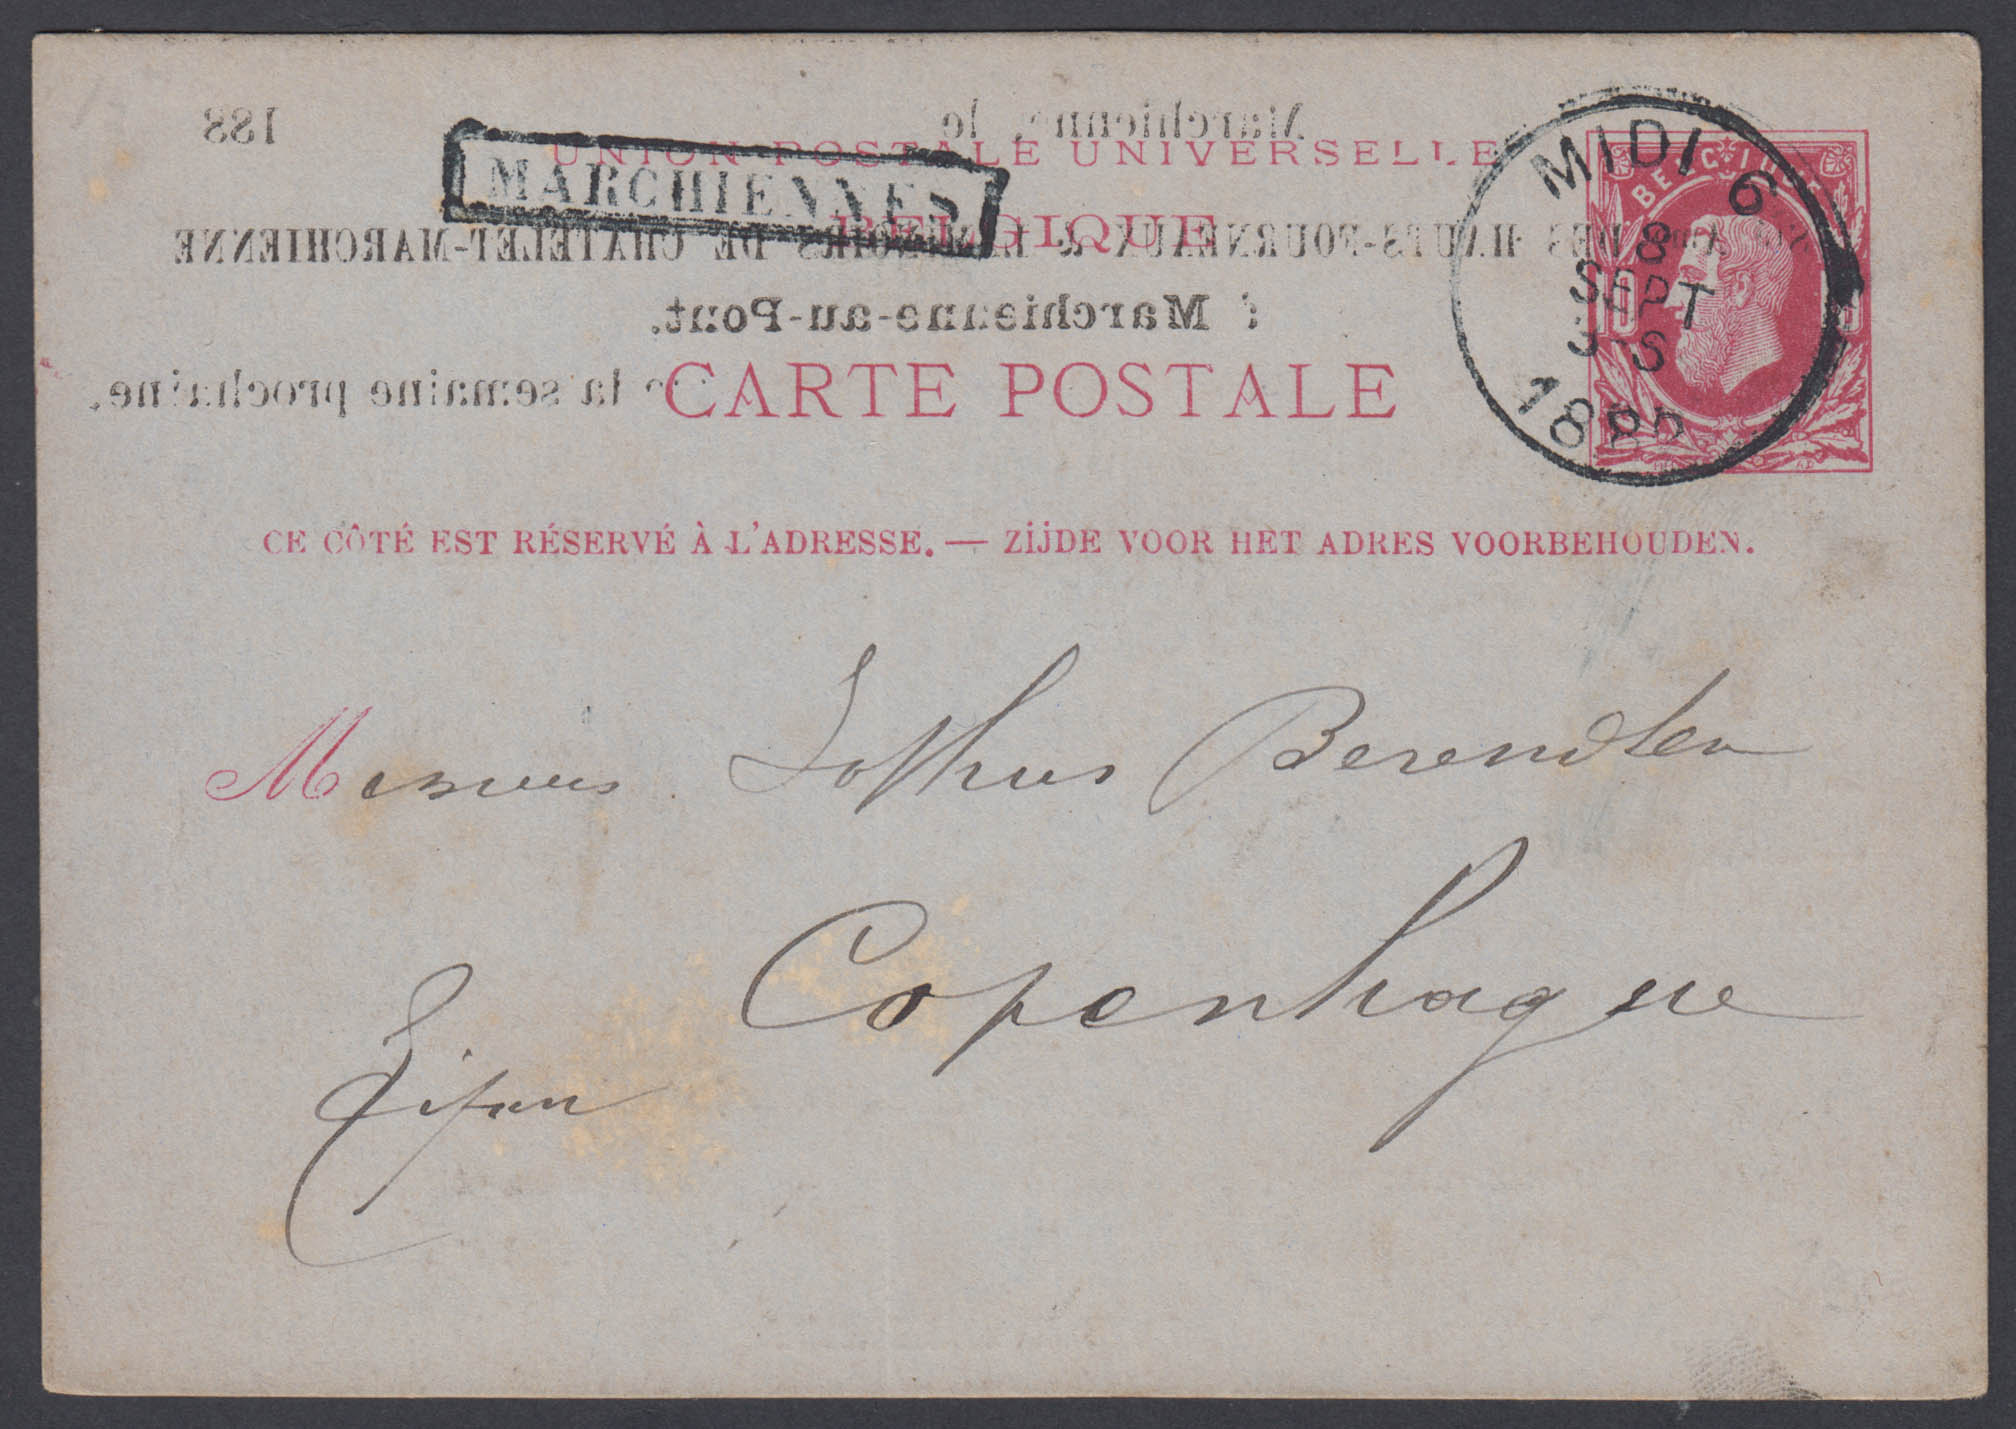 188 Marchienne, le
UNION POSTALE UNIVERSELLE
MARCHIENNES
BELGIQUE
DES HAUTS-FOURNEAUX & LAMINOIRS DE CHATELET-MARCHIENNE
Marchienne-au-Pont.
la semaine prochaine.
CARTE POSTALE
MIDI 6
8
SEPT
3-S
1880
BELGIQUE
10
CE CÔTÉ EST RÉSERVÉ À L'ADRESSE. — ZIJDE VOOR HET ADRES VOORBEHOUDEN.
Messieurs Berendsen
Copenhague